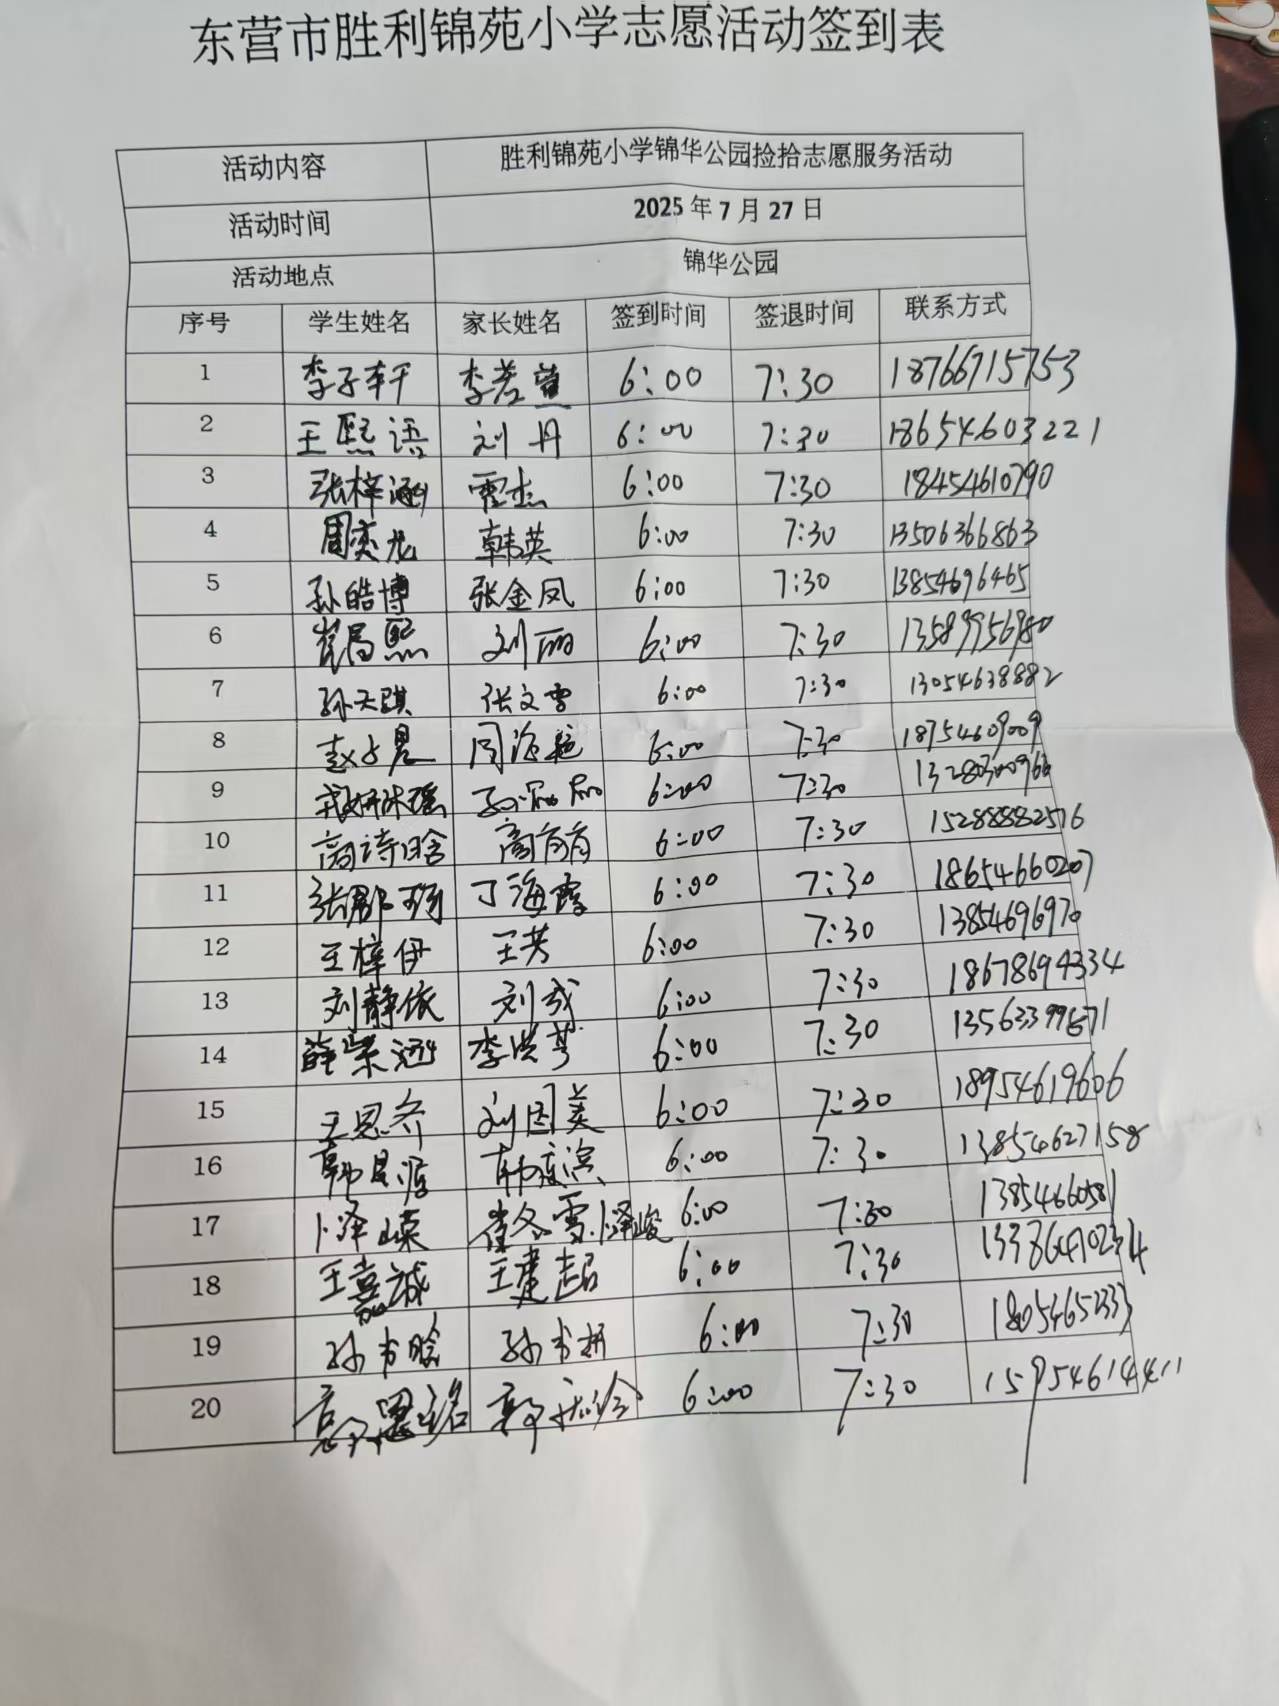 东营市胜利锦苑小学志愿活动签到表
活动内容 胜利锦苑小学锦华公园捡拾志愿服务活动
活动时间 2025年7月27日
活动地点 锦华公园
序号 学生姓名 家长姓名 签到时间 签退时间 联系方式
1 李子轩 李若萱 6:00 7:30 18766715753
2 王熙语 刘丹 6:00 7:30 18654603221
3 张梓涵 霍杰 6:00 7:30 18454610790
4 周奕龙 韩英 6:00 7:30 13506366863
5 孙皓博 张金凤 6:00 7:30 13854696465
6 崔昌熙 刘丽 6:00 7:30 13589956980
7 孙天骐 张文雪 6:00 7:30 13054638882
8 赵子晨 周海艳 6:00 7:30 18754609009
9 6:00 7:30 13280300966
10 高诗晗 高育育 6:00 7:30 15288882516
11 张郡珂 丁海霞 6:00 7:30 18654660207
12 王梓伊 王芳 6:00 7:30 1385469697
13 刘静依 刘成 6:00 7:30 18678694334
14 薛紫涵 李洪芹 6:00 7:30 13563399671
15 王思乔 刘因美 6:00 7:30 18954619606
16 6:00 7:30 13854627158
17 卜泽嵘 崔冬雪.卜泽峻 6:00 7:30 13854660581
18 王嘉诚 王建超 6:00 7:30
19 孙书晗 孙书妍 6:00 7:30 18054652333
20 郭恩铭 6:00 7:30 15954614411